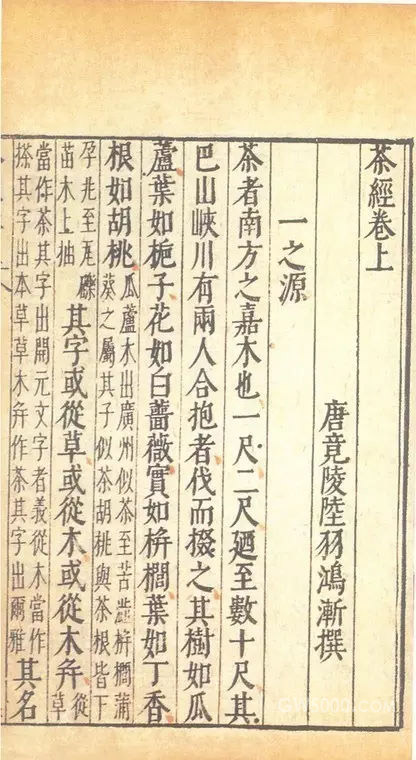 茶經卷上
唐竟陵陸羽鴻漸撰
一之源
茶者南方之嘉木也一尺二尺廼至數十尺其
巴山峽川有兩人合抱者伐而掇之其樹如瓜
蘆葉如梔子花如白薔薇實如栟櫚葉如丁香
根如胡桃
瓜蘆木出廣州似茶至苦澁栟櫚蒲
葵之屬其子似茶胡桃與茶根皆下
孕兆至瓦礫
苗木上抽
其字或從草或從木或從木弁
從
草
當作茶其字出開元文字者義從木當作
搽其字出本草草木弁作茶其字出爾雅
其名